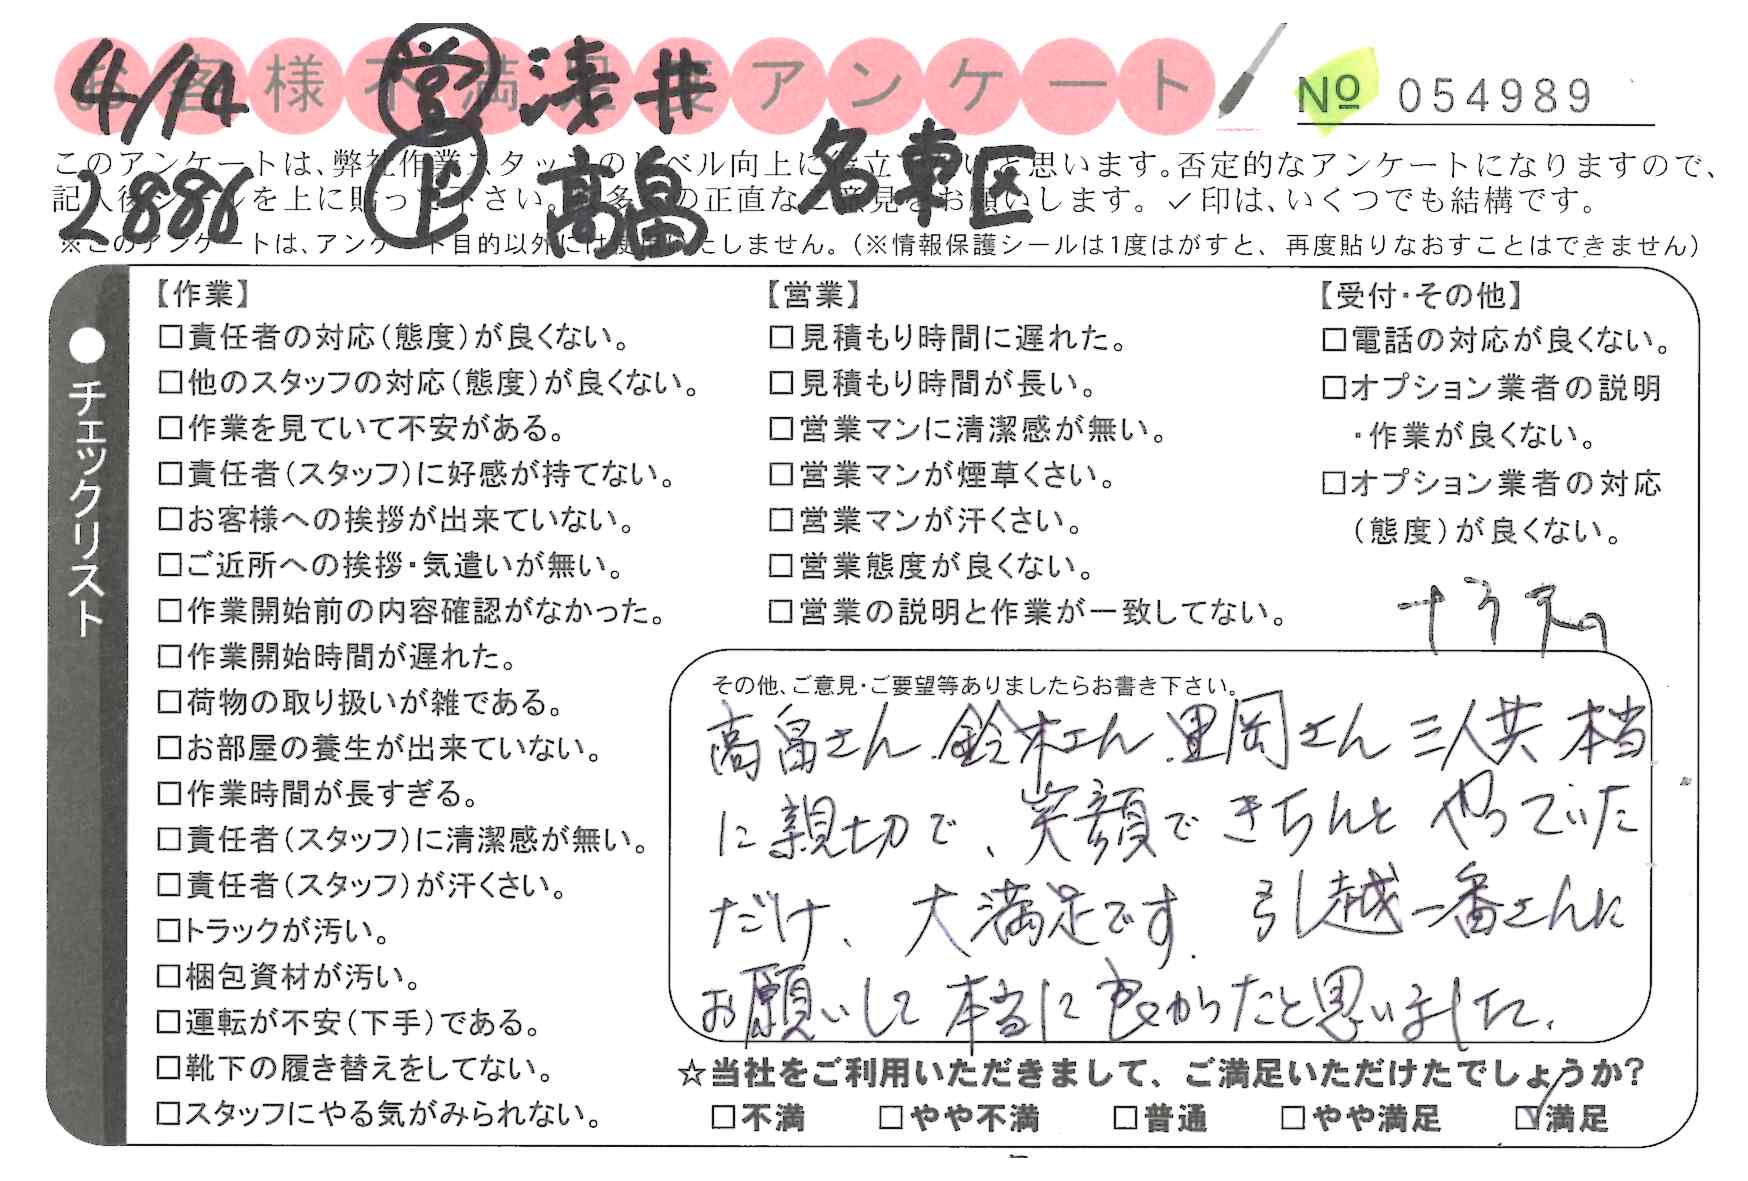 お客様不満足度アンケート
4/14 営 浅井
№ 054989
2886 上 高畠 名東区
このアンケートは、弊社作業スタッフのレベル向上に役立てたいと思います。否定的なアンケートになりますので、
記入後シールを上に貼って下さい。数多くの正直なご意見をお願いします。✓印は、いくつでも結構です。
※このアンケートは、アンケート目的以外には使用いたしません。(※情報保護シールは1度はがすと、再度貼りなおすことはできません)
●チェックリスト
【作業】
□責任者の対応(態度)が良くない。
□他のスタッフの対応(態度)が良くない。
□作業を見ていて不安がある。
□責任者(スタッフ)に好感が持てない。
□お客様への挨拶が出来ていない。
□ご近所への挨拶・気遣いが無い。
□作業開始前の内容確認がなかった。
□作業開始時間が遅れた。
□荷物の取り扱いが雑である。
□お部屋の養生が出来ていない。
□作業時間が長すぎる。
□責任者(スタッフ)に清潔感が無い。
□責任者(スタッフ)が汗くさい。
□トラックが汚い。
□梱包資材が汚い。
□運転が不安(下手)である。
□靴下の履き替えをしてない。
□スタッフにやる気がみられない。
【営業】
□見積もり時間に遅れた。
□見積もり時間が長い。
□営業マンに清潔感が無い。
□営業マンが煙草くさい。
□営業マンが汗くさい。
□営業態度が良くない。
□営業の説明と作業が一致してない。
【受付・その他】
□電話の対応が良くない。
□オプション業者の説明
・作業が良くない。
□オプション業者の対応
(態度)が良くない。
その他、ご意見・ご要望等ありましたらお書き下さい。
高畠さん、鈴木さん、里岡さん 三人共 本当
に親切で、笑顔で きちんと やっていた
だけ、大満足です。引越一番さんに
お願いして 本当に良かったと思いました。
☆当社をご利用いただきまして、ご満足いただけたでしょうか?
□不満 □やや不満 □普通 □やや満足 ☑満足